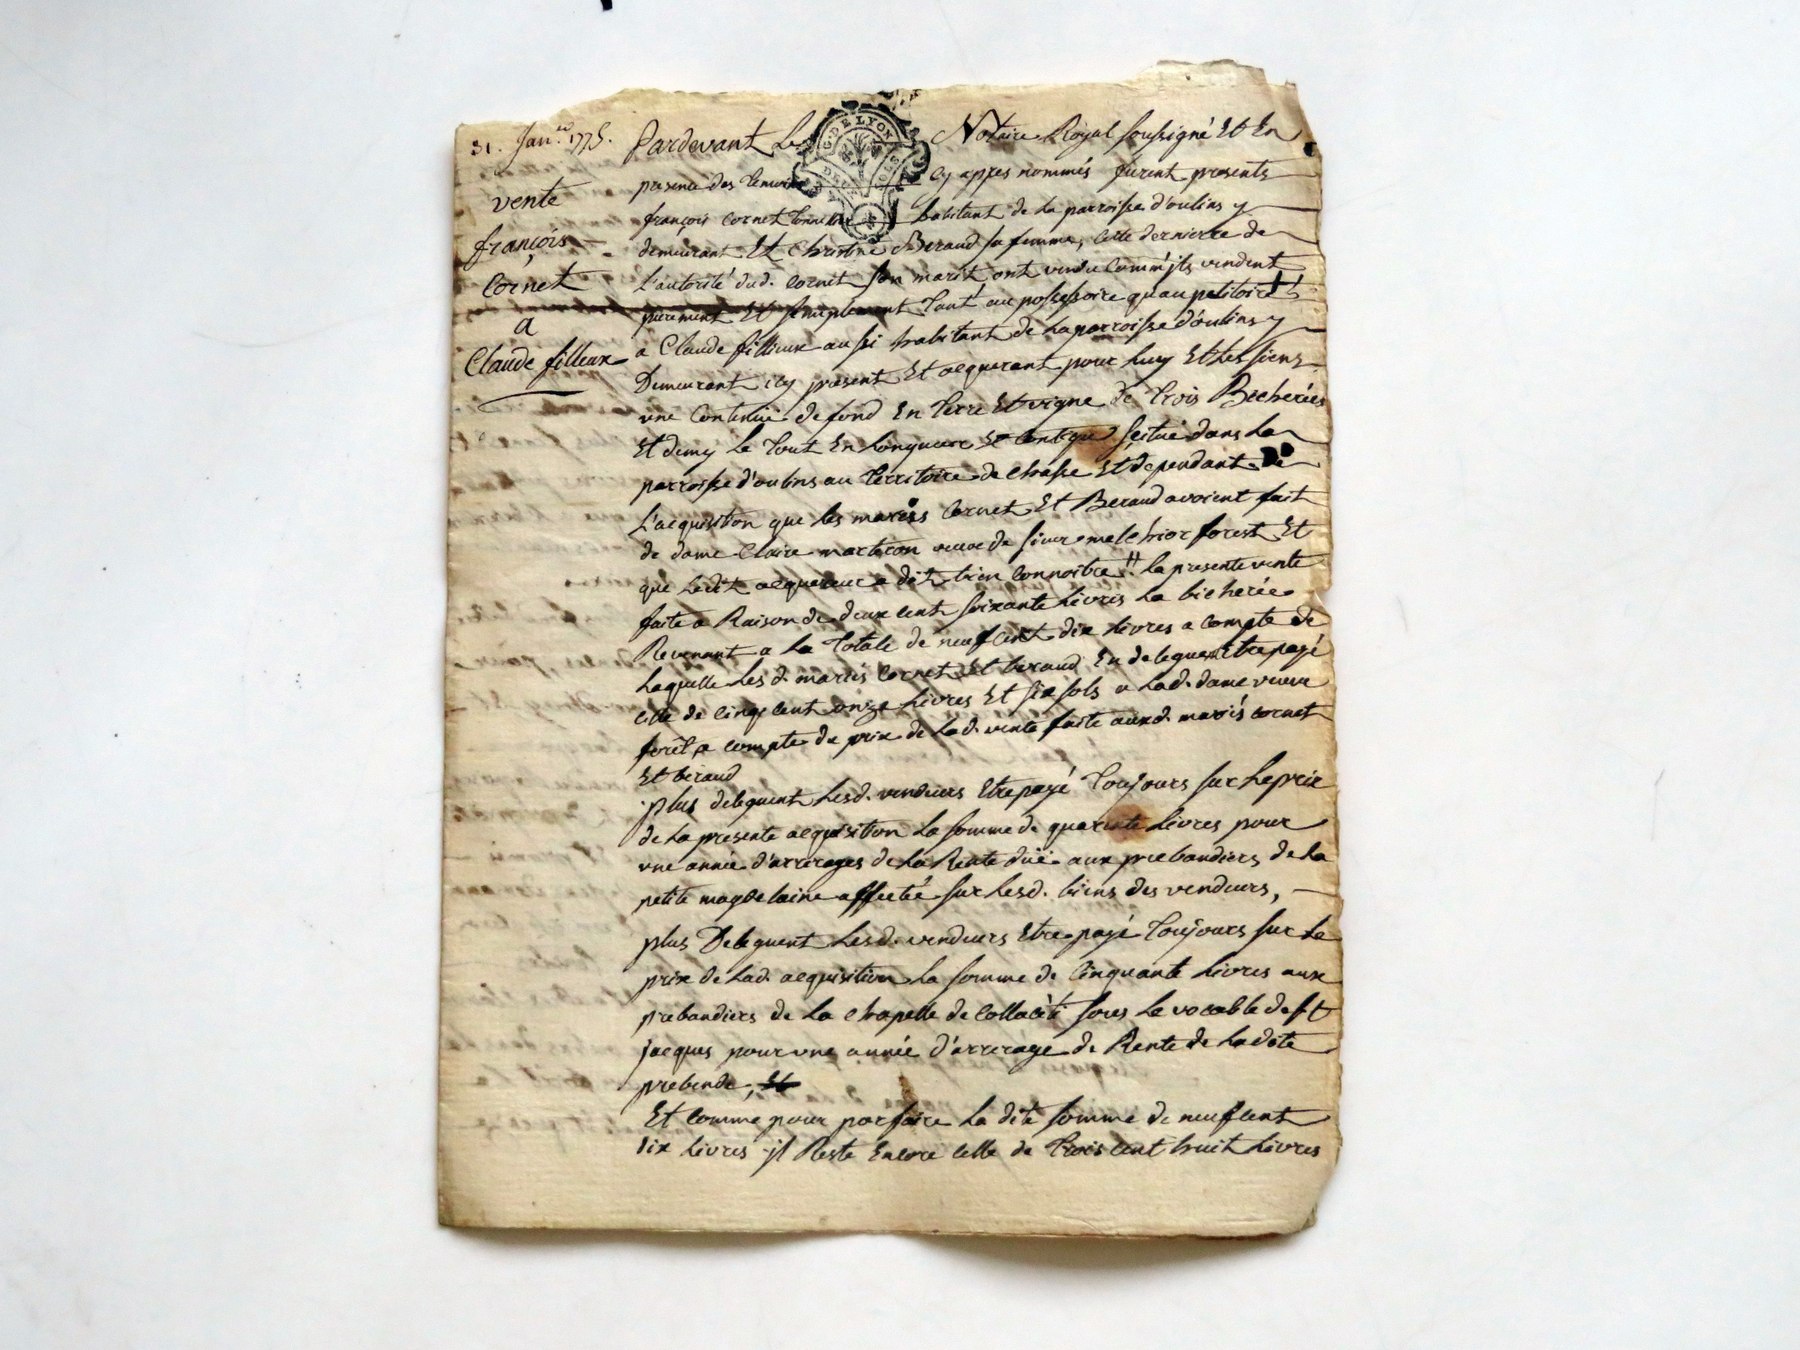 31. Jan.er 1775.
vente
françois
Cornet
a
Claude fillieux
G. DE LYON
DEUX SOLS
Pardevant Le Notaire Royal soussigné Et En
presence des temoins cy appres nommés furent presents
françois cornet habitant de La parroisse d'oulins y
demeurant Et Christine Beraud sa femme, Cette derniere de
L'autorité dud. Cornet son marit ont vendu Comm'jls vendent
purement Et simplement Tant au possessoire qu'au petitoire
a Claude fillieux aussi habitant de La parroisse d'oulins y
Demeurant icy present Et acquerant pour Luy Et Les siens
une Contenüe de fond En Terre Et vigne de Trois Bicherées
Et demy Le Tout En Longueur Et Contigu scitué dans La
parroisse d'oulins au Territoire de chasse Et dependant de
L'acquisition que Les mariés Cornet Et Beraud avoient fait
de dame Claire marteron veuve de sieur melchior forest Et
que Ledit acquereur a dit bien Connoitre. La presente vente
faite a Raison de deux cent soixante Livres La bicherée
Revenant a La Totale de neuf cent dix Livres a Compte de
Laquelle Les d. mariés Cornet Et beraud En deleguent Etre payé
celle de cinq cent onze Livres Et six sols a Lad. dame veuve
forêt, a compte du prix de Lad. vente faite aux d. mariés cornet
Et beraud
plus deleguent Lesd. vendeurs Etre payé Toujours sur Le prix
de La presente acquisition La somme de quarante Livres pour
une année d'arrerages de La Rente düe aux prebandiers de La
petite magdelaine affectée sur Lesd. biens des vendeurs,
plus Deleguent Lesd. vendeurs Etre payé Toujours sur Le
prix de Lad. acquisition La somme de Cinquante Livres aux
prebandiers de La Chapelle de Sous Le vocable de st
jacques pour une année d'arrerage de Rente de La dite
prebende, Et
Et comme pour parfaire La dite somme de neuf cent
dix Livres jl Reste Encore celle de Trois cent huit Livres